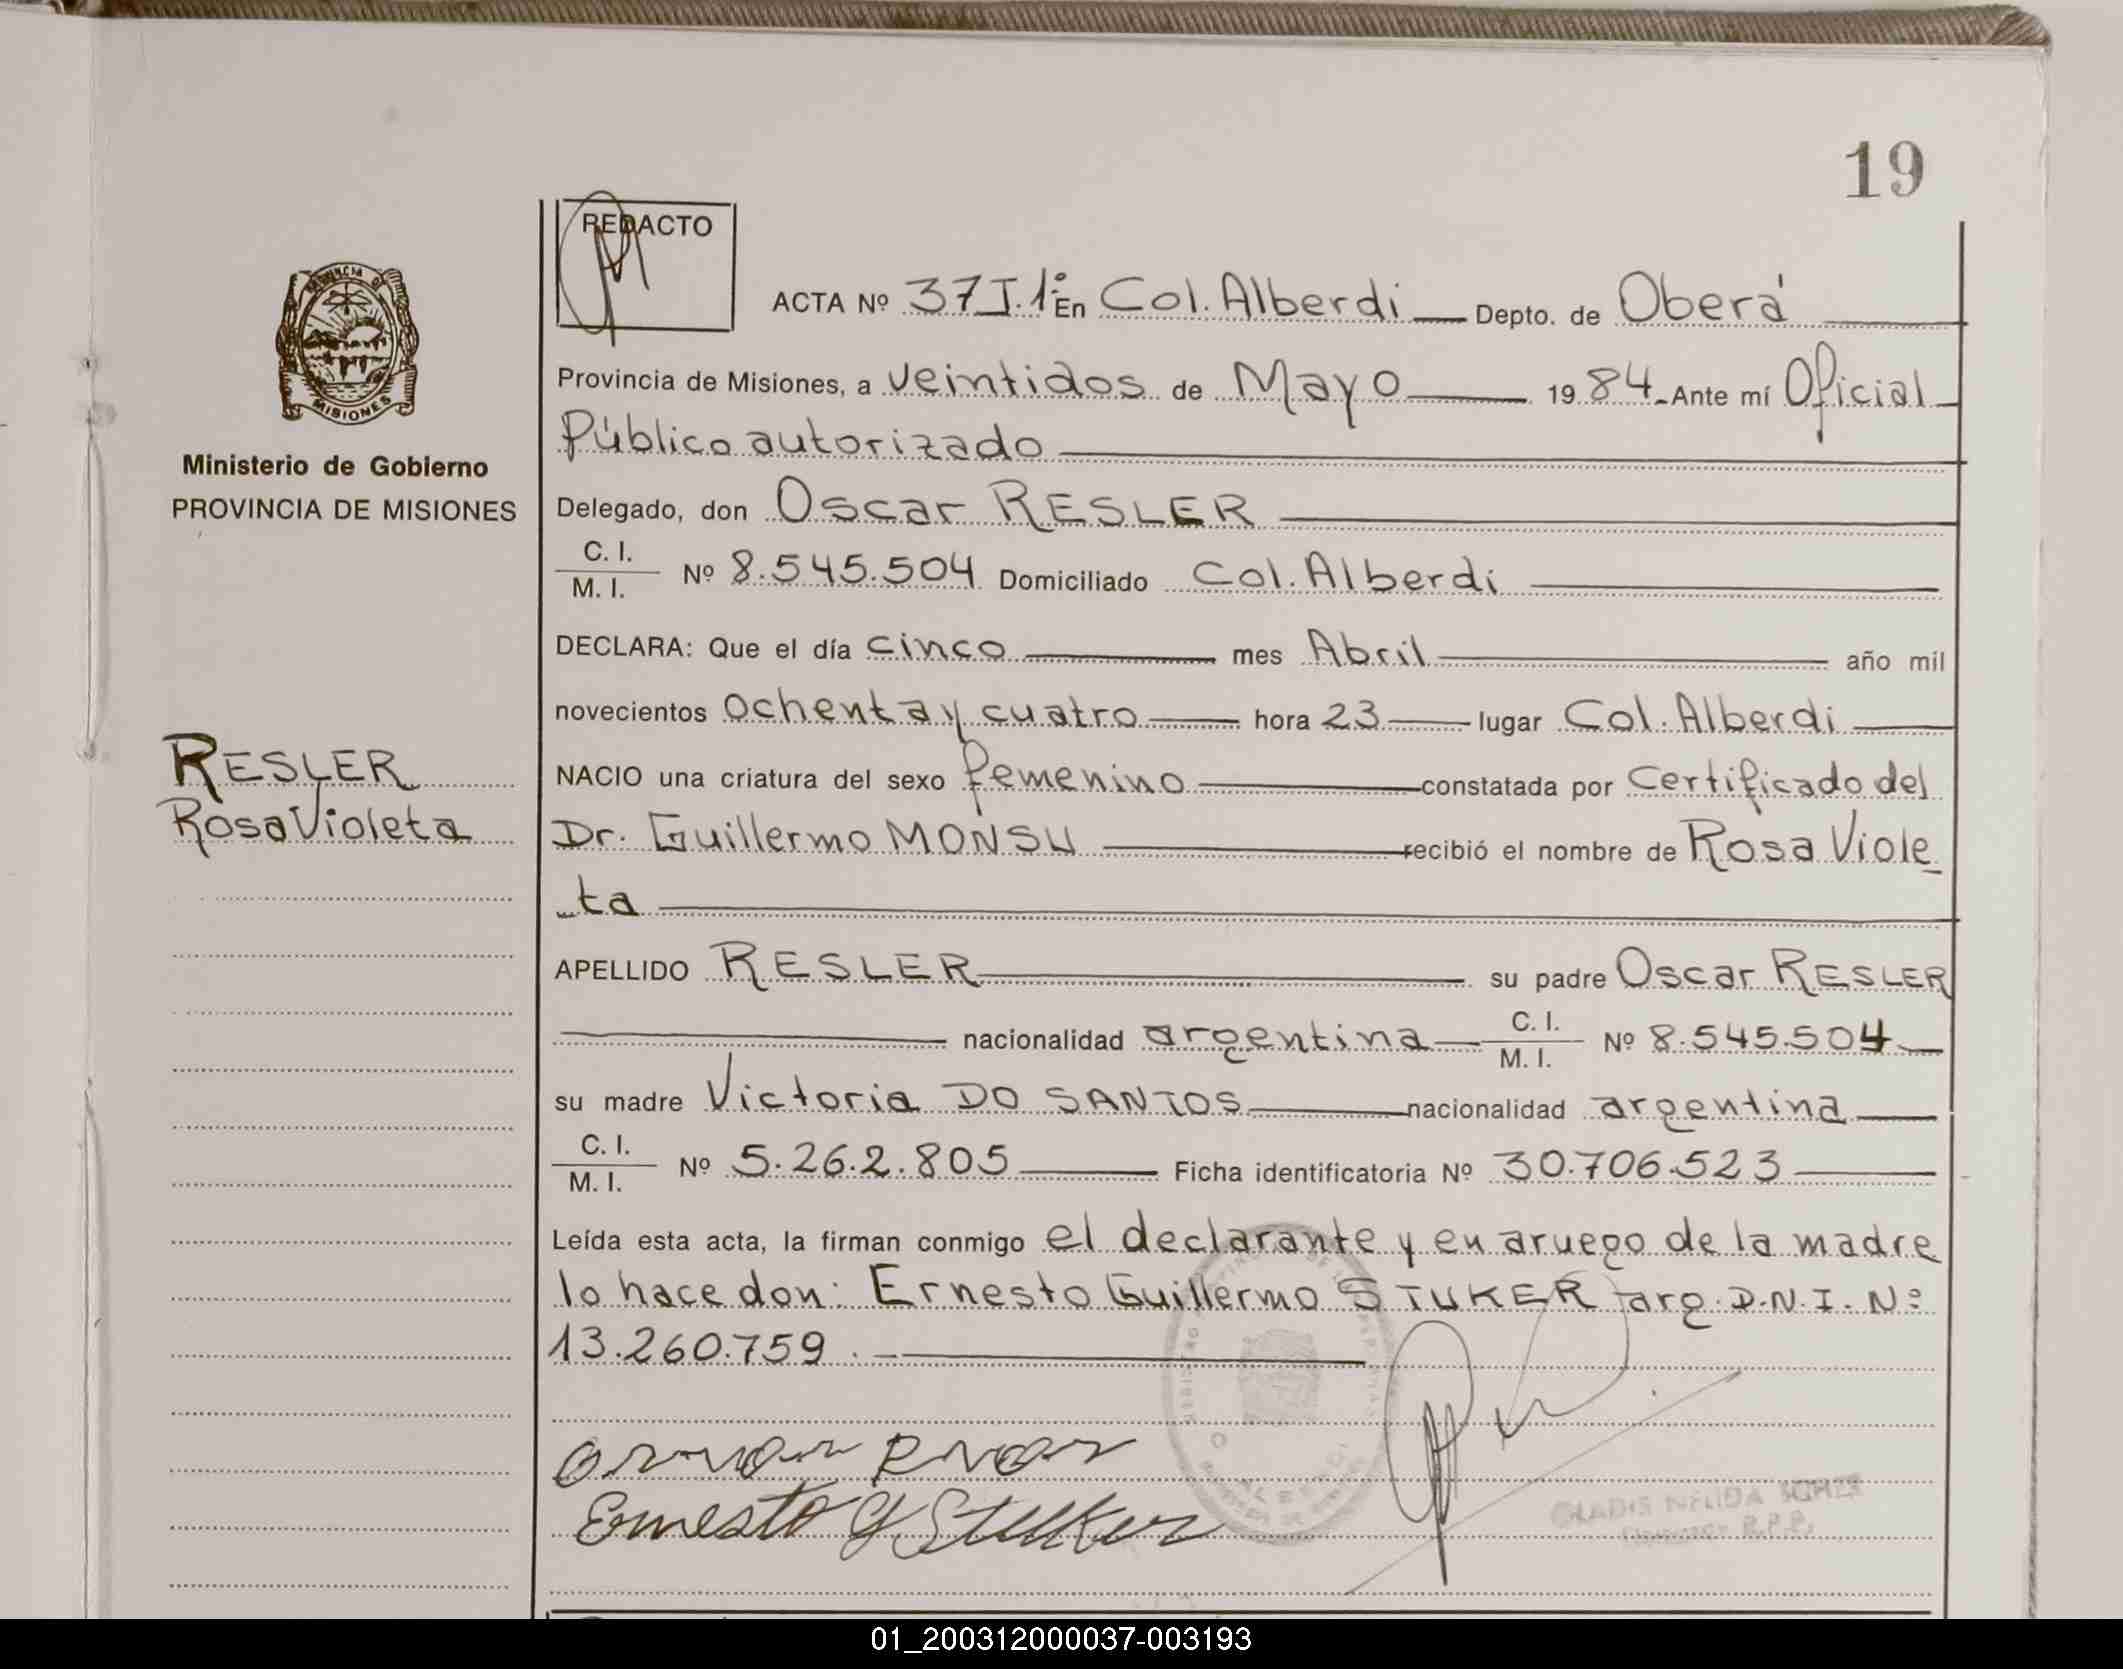 19
REDACTO
ACTA Nº 37 T. 1º En Col. Alberdi Depto. de Oberá
PROVINCIA DE MISIONES
Provincia de Misiones, a veintidos de Mayo 1984 Ante mí Oficial
Público autorizado
Ministerio de Gobierno
PROVINCIA DE MISIONES
Delegado, don Oscar RESLER
C. I.
M. I. Nº 8.545.504 Domiciliado Col. Alberdi
DECLARA: Que el día cinco mes Abril año mil
novecientos ochenta y cuatro hora 23 lugar Col. Alberdi
RESLER
Rosa Violeta
NACIO una criatura del sexo femenino constatada por certificado del
Dr. Guillermo MONSU recibió el nombre de Rosa Viole
ta
APELLIDO RESLER su padre Oscar RESLER
nacionalidad argentina C. I. M. I. Nº 8.545.504
su madre Victoria DO SANTOS nacionalidad argentina
C. I.
M. I. Nº 5.262.805 Ficha identificatoria Nº 30.706.523
Leída esta acta, la firman conmigo el declarante y en aruego de la madre
lo hace don: Ernesto Guillermo STUKER arg. D.N.I. Nº
13.260.759.
Ernesto G Stuker
GLADIS NELIDA
01_200312000037-003193